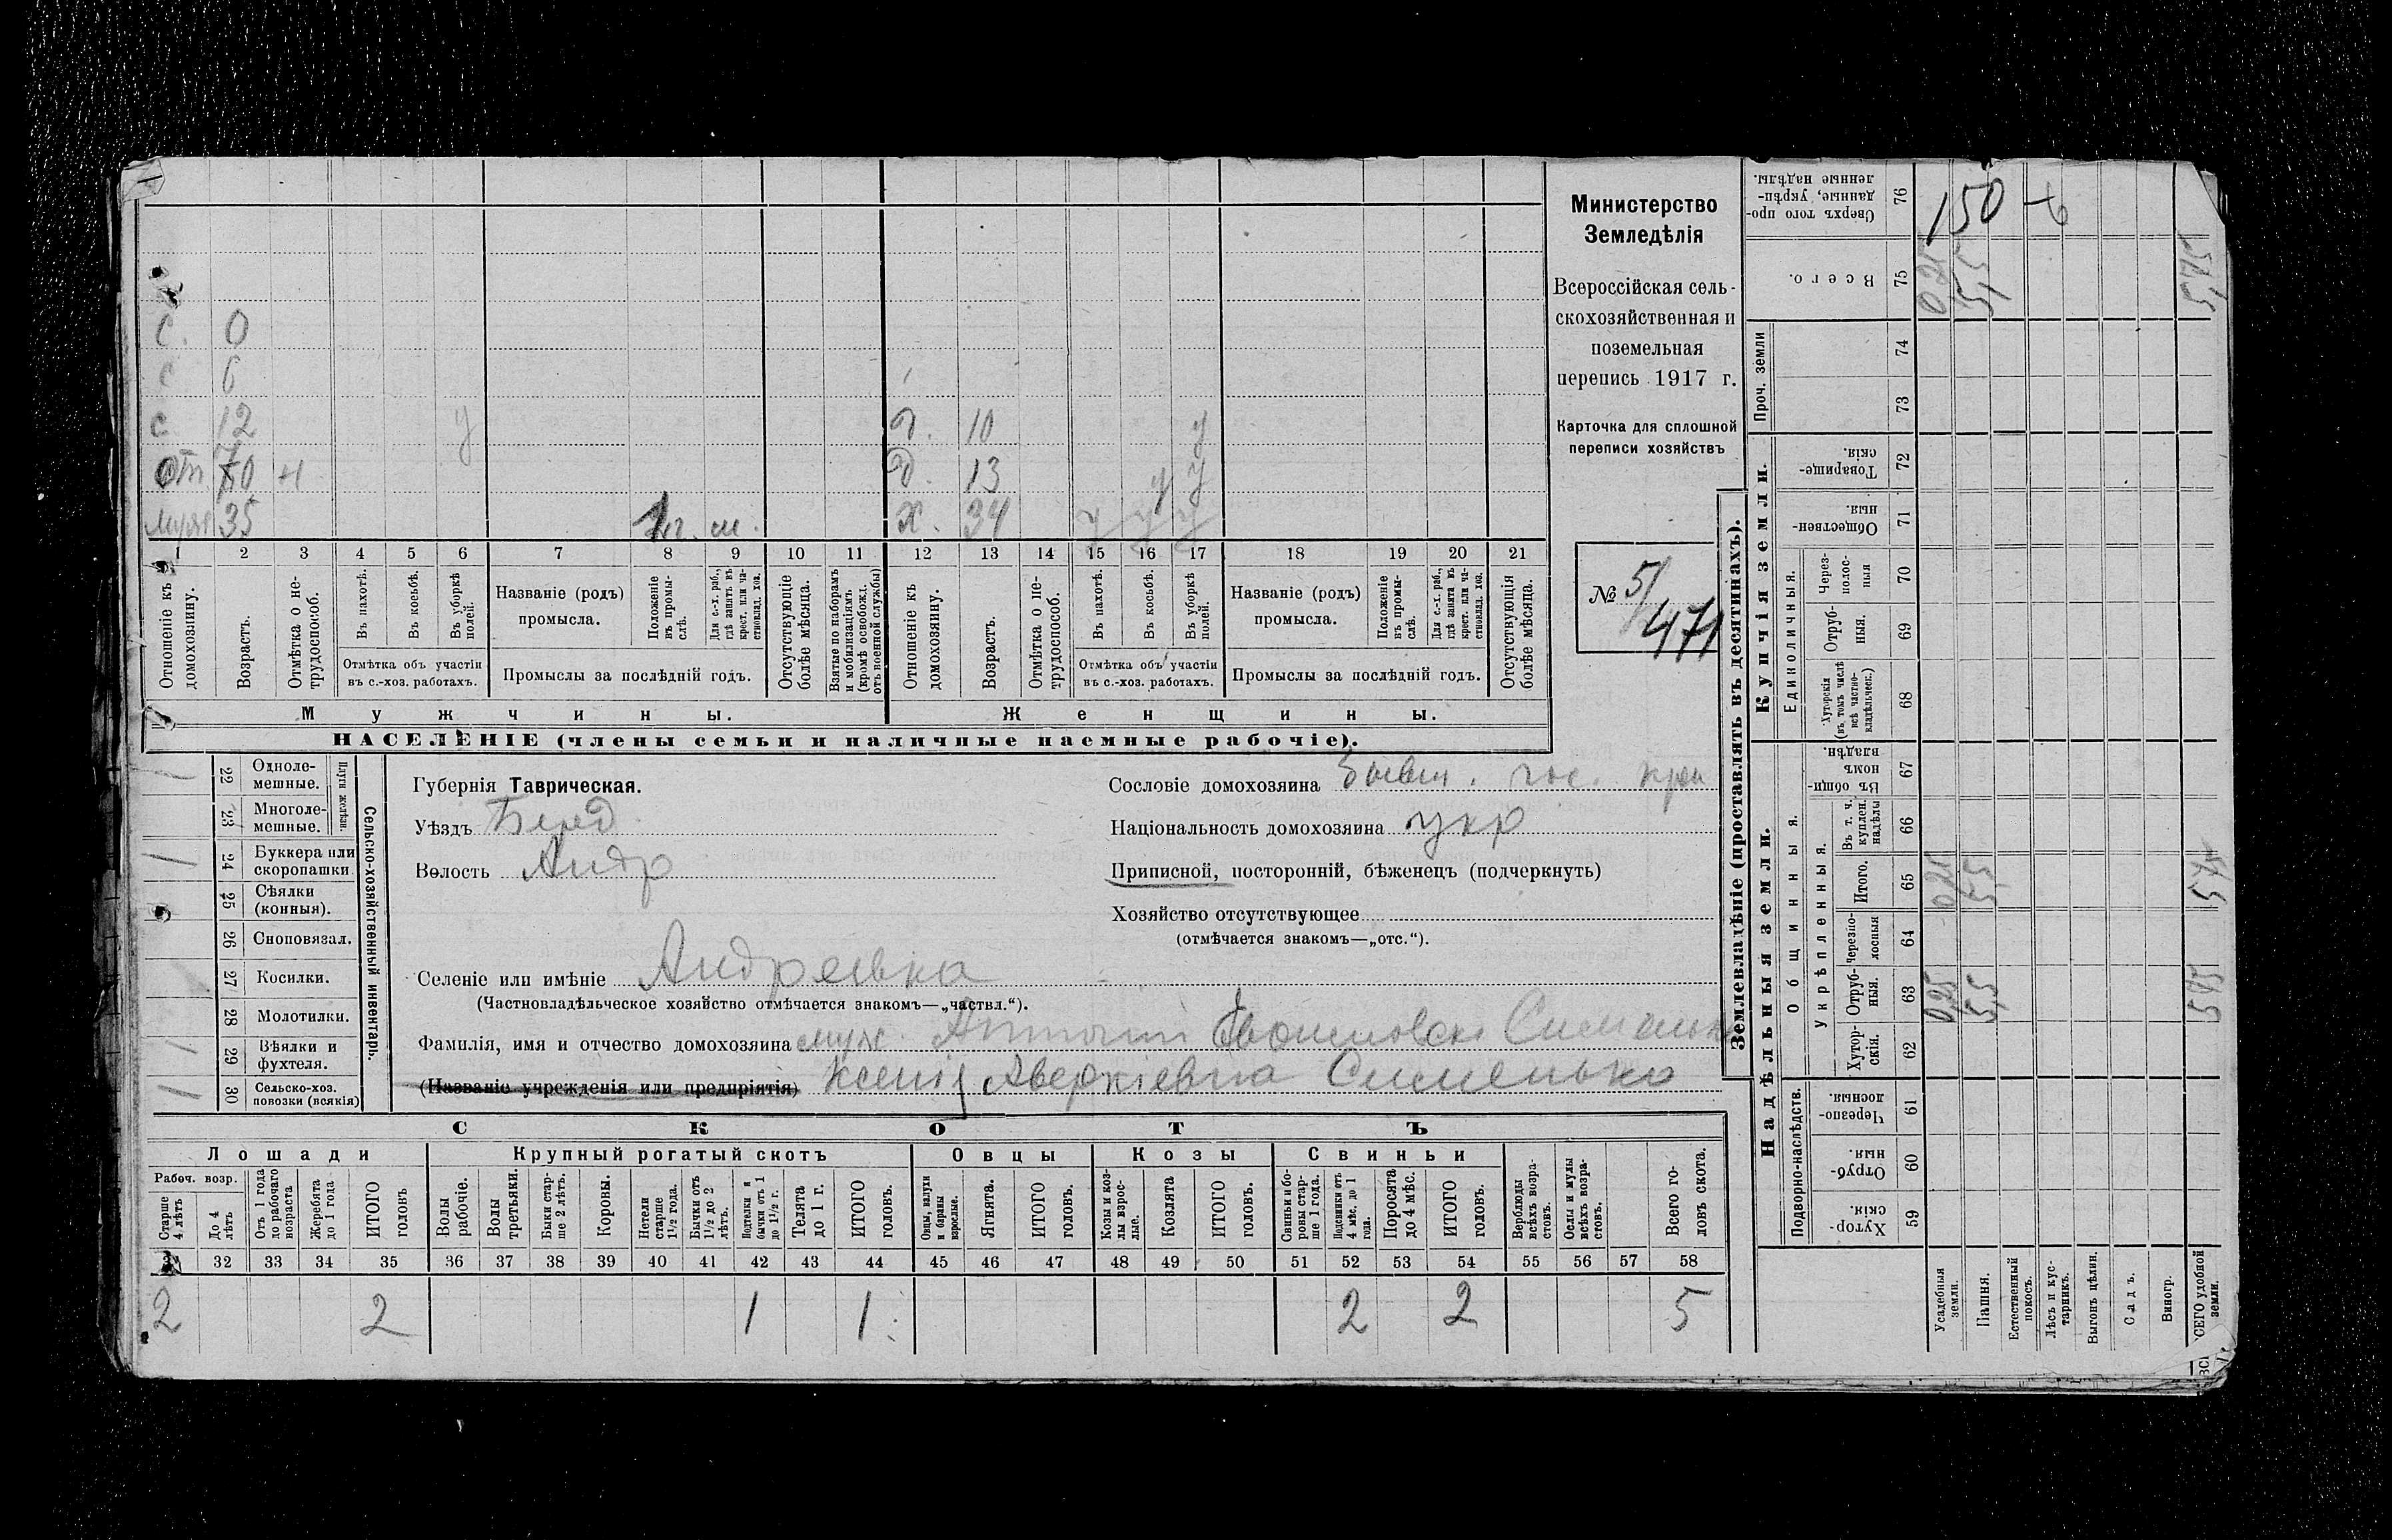 Министерство
Земледѣлія
Всероссійская сель-
скохозяйственная и
поземельная
перепись 1917 г.
Карточка для сплошной
переписи хозяйствъ
№ 5/471
с. 0
с 6
с 12 у
от. 70 н
муж 35
д. 10 у
д. 13 у у
х. 34 у у у
1 2 3 4 5 6 7 8 9 10 11 12 13 14 15 16 17 18 19 20 21
Отношеніе къ домохозяину.
Возрастъ.
Отмѣтка о не-трудоспособ.
Въ пахотѣ.
Въ косьбѣ.
Въ уборкѣ полей.
Отмѣтка объ участіи
въ с.-хоз. работахъ.
Названіе (родъ)
промысла.
Положеніе въ промы-слѣ.
Для с.-х. раб., гдѣ занятъ въ крест. или ча-стновлад. хоз.
Промыслы за послѣдній годъ.
Отсутствующіе болѣе мѣсяца.
Взятые по наборамъ и мобилизаціямъ (кромѣ освобожд. отъ военной службы)
Отношеніе къ домохозяину.
Возрастъ.
Отмѣтка о не-трудоспособ.
Въ пахотѣ.
Въ косьбѣ.
Въ уборкѣ полей.
Отмѣтка объ участіи
въ с.-хоз. работахъ.
Названіе (родъ)
промысла.
Положеніе въ промы-слѣ.
Для с.-х. раб., гдѣ занята въ крест. или ча-стновлад. хоз.
Промыслы за послѣдній годъ.
Отсутствующія болѣе мѣсяца.
Мужчины.
Женщины.
НАСЕЛЕНІЕ (члены семьи и наличные наемные рабочіе).
Сельско-хозяйственный инвентарь.
Плуги желѣзн.
22 Одноле-мешные.
23 Многоле-мешные.
24 Буккера или скоропашки.
25 Сѣялки (конныя).
26 Сноповязал.
27 Косилки.
28 Молотилки.
29 Вѣялки и фухтеля.
30 Сельско-хоз. повозки (всякія)
Губернія Таврическая.
Уѣздъ Берд
Волость Андр
Селеніе или имѣніе Андреевка
(Частновладѣльческое хозяйство отмѣчается знакомъ—„частвл.“).
Фамилія, имя и отчество домохозяина муж.
(Названіе учрежденія или предпріятія) Ксенія Аверкіевна Сименько
Сословіе домохозяина бывш. гос. крес
Національность домохозяина укр
Приписной, посторонній, бѣженецъ (подчеркнуть)
Хозяйство отсутствующее
(отмѣчается знакомъ—„отс.“).
СКОТЪ
Лошади
Крупный рогатый скотъ
Овцы
Козы
Свиньи
Рабоч. возр.
Старше 4 лѣтъ
До 4 лѣтъ
Отъ 1 года до рабочаго возраста
Жеребята до 1 года
ИТОГО головъ
Волы рабочіе.
Волы третьяки.
Быки стар-ше 2 лѣтъ.
Коровы.
Нетели старше 1½ года.
Бычки отъ 1½ до 2 лѣтъ.
Подтелки и бычки отъ 1 до 1½ г.
Телята до 1 г.
ИТОГО головъ.
Овцы, валухи и бараны взрослые.
Ягнята.
ИТОГО головъ.
Козы и коз-лы взрос-лые.
Козлята
ИТОГО головъ.
Свиньи и бо-ровы стар-ше 1 года.
Подсвинки отъ 4 мѣс. до 1 года.
Поросята до 4 мѣс.
ИТОГО головъ.
Верблюды всѣхъ возра-стовъ.
Ослы и мулы всѣхъ возра-стовъ.
Всего го-ловъ скота.
31 32 33 34 35 36 37 38 39 40 41 42 43 44 45 46 47 48 49 50 51 52 53 54 55 56 57 58
2 2 1 1 2 2 5
Землевладѣніе (проставлять въ десятинахъ).
Купчія земли.
Надѣльныя земли.
Проч. земли
Единоличныя.
Общинныя.
Укрѣпленныя.
Подворно-наслѣдств.
Сверхъ того про-данные, укрѣп-ленные надѣлы. 76 150
Всего. 75 5,5 5,75
74
73
Товарище-скія. 72
Обществен-ныя. 71
Через-полос-ныя 70
Отруб-ныя. 69
Хуторскія (въ томъ числѣ всѣ частно-владѣльческ.) 68
Въ общи-номъ владѣн. 67
Въ т. ч. куплен. надѣлы 66
Итого. 65 5,5 5,75
Черезпо-лосныя 64
Отруб-ныя. 63 0,25 5,5 5,75
Хутор-скія. 62
Черезпо-лосныя. 61
Отруб-ныя. 60
Хутор-скія. 59
Усадебныя земли.
Пашня.
Естественный покосъ.
Лѣсъ и кус-тарникъ.
Выгонъ цѣлин.
Садъ.
Виногр.
ВСЕГО удобной земли.